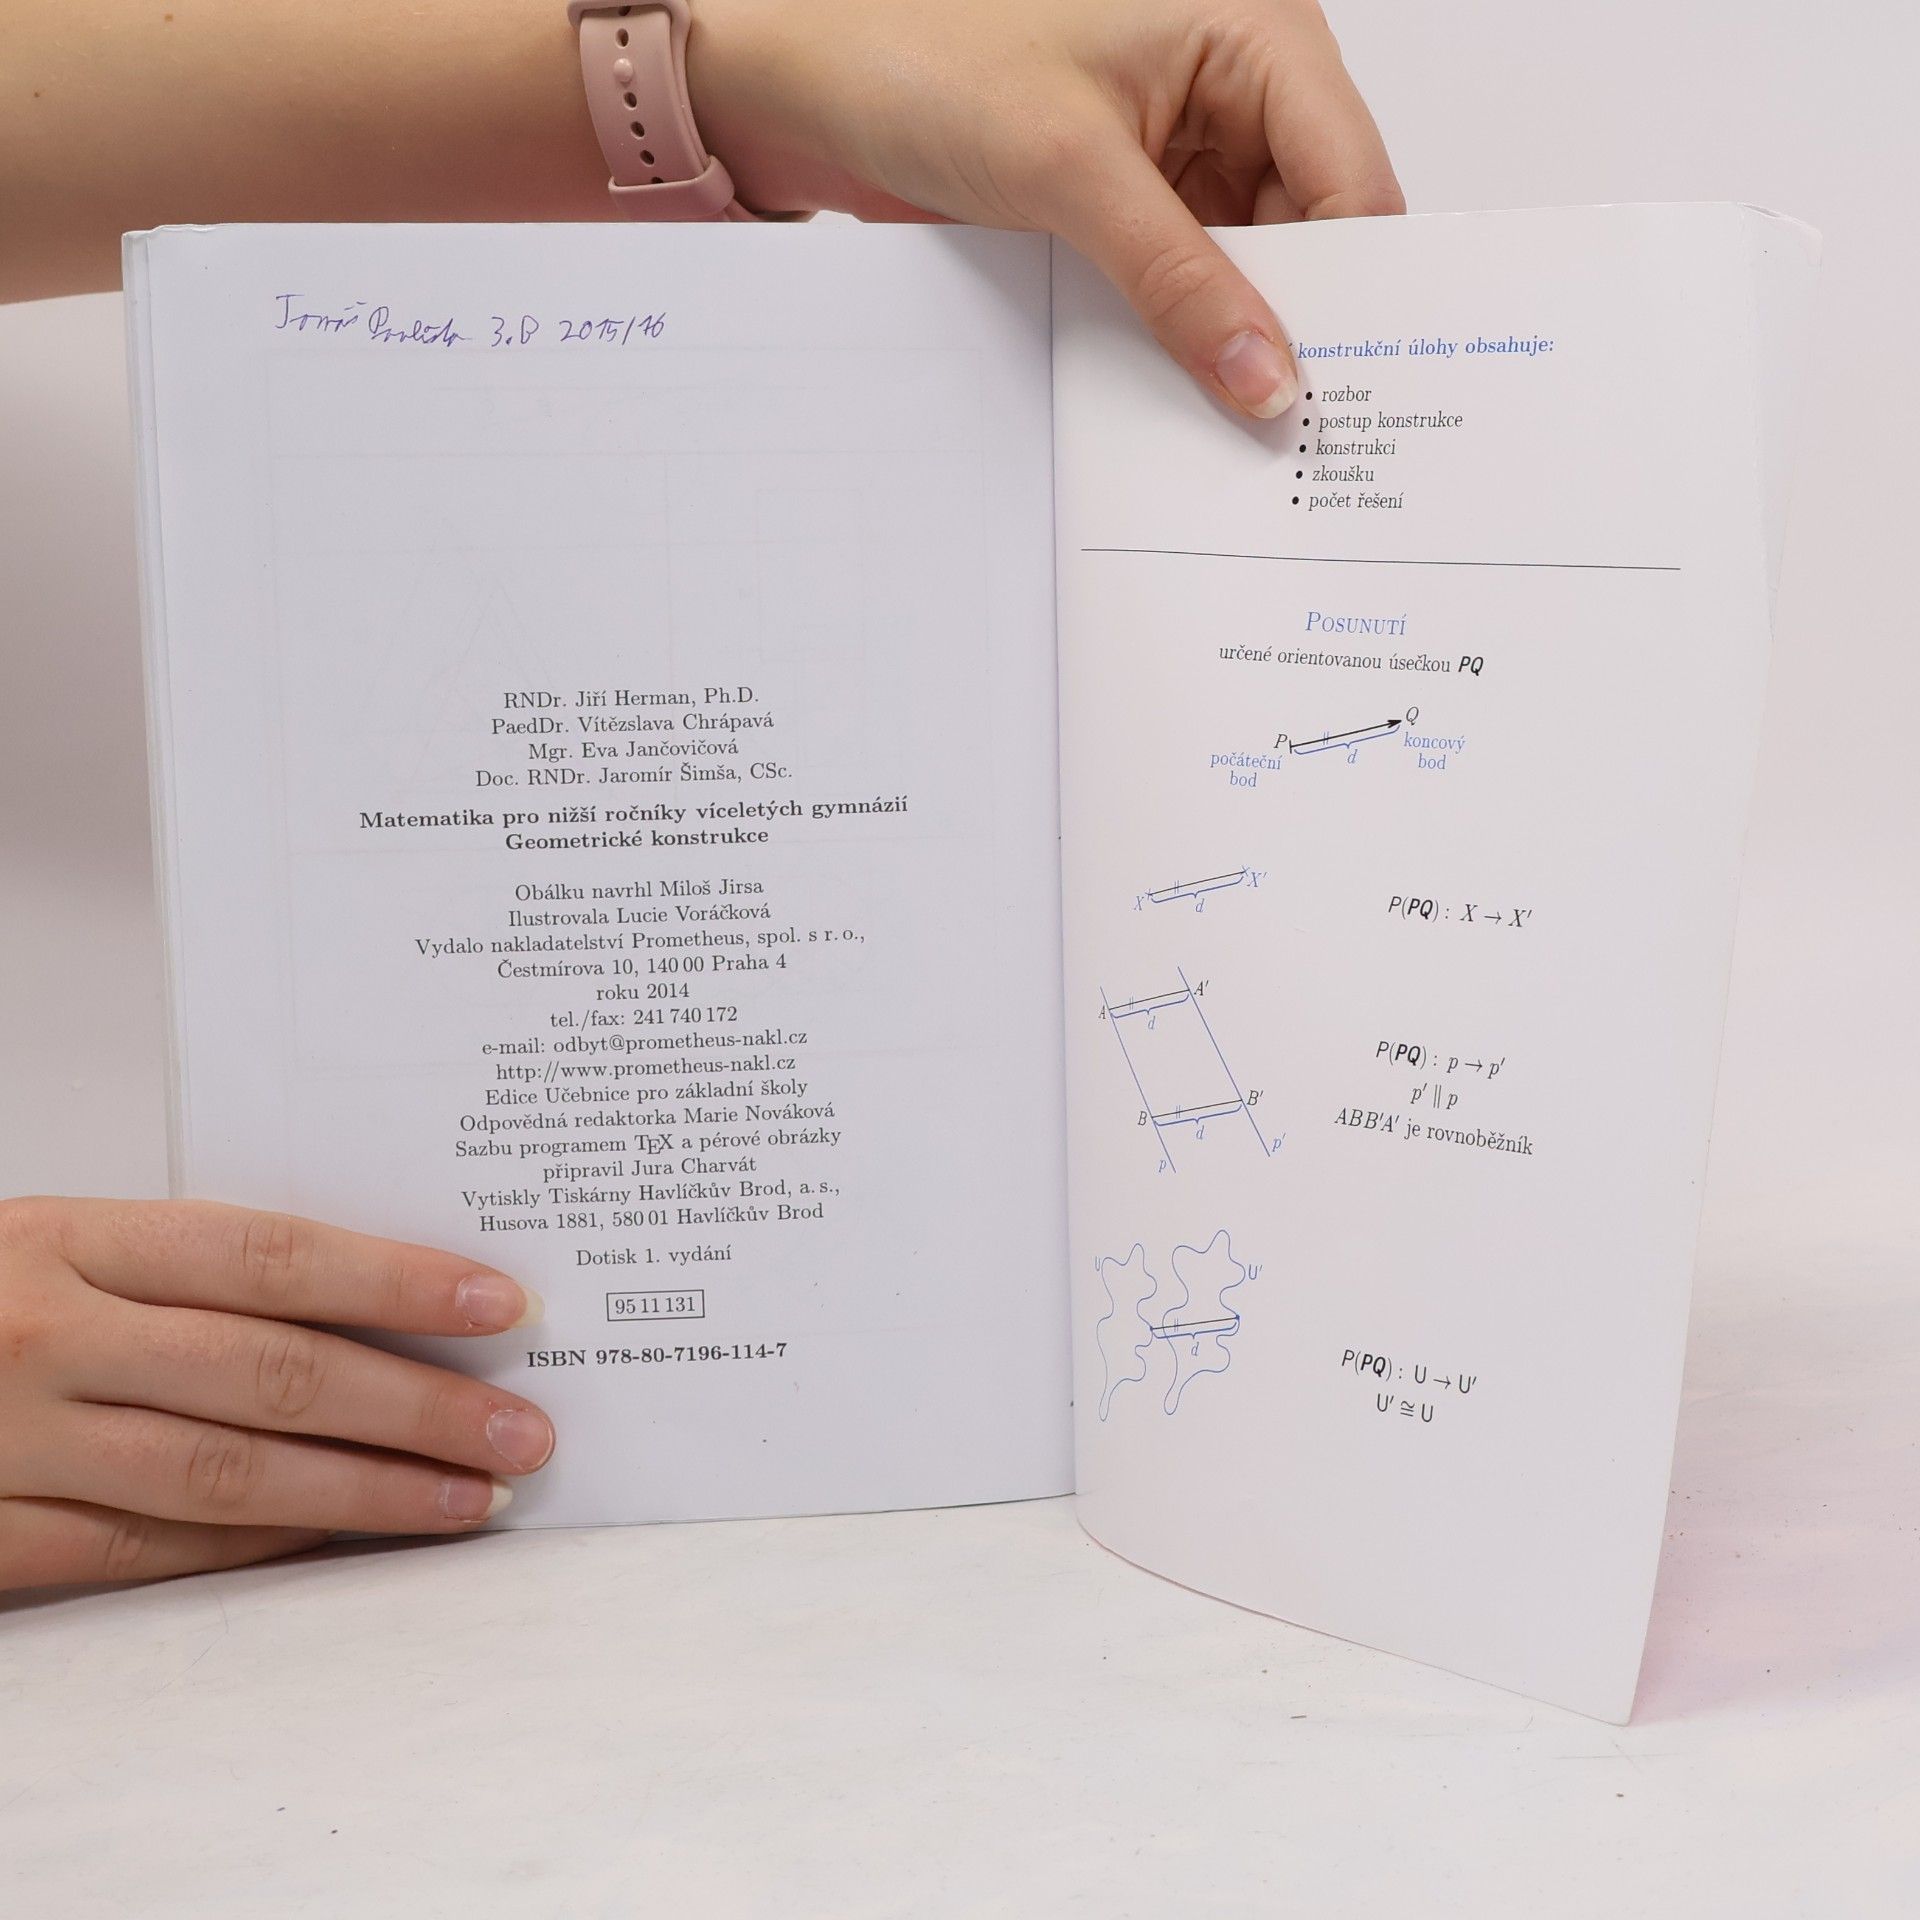 Tomáš 3.B 2015/16
RNDr. Jiří Herman, Ph.D.
PaedDr. Vítězslava Chrápavá
Mgr. Eva Jančovičová
Doc. RNDr. Jaromír Šimša, CSc.
Matematika pro nižší ročníky víceletých gymnázií
Geometrické konstrukce
Obálku navrhl Miloš Jirsa
Ilustrovala Lucie Voráčková
Vydalo nakladatelství Prometheus, spol. s r. o.,
Čestmírova 10, 140 00 Praha 4
roku 2014
tel./fax: 241 740 172
e-mail: odbyt@prometheus-nakl.cz
http://www.prometheus-nakl.cz
Edice Učebnice pro základní školy
Odpovědná redaktorka Marie Nováková
Sazbu programem TEX a pérové obrázky
připravil Jura Charvát
Vytiskly Tiskárny Havlíčkův Brod, a. s.,
Husova 1881, 580 01 Havlíčkův Brod
Dotisk 1. vydání
95 11 131
ISBN 978-80-7196-114-7
konstrukční úlohy obsahuje:
• rozbor
• postup konstrukce
• konstrukci
• zkoušku
• počet řešení
POSUNUTÍ
určené orientovanou úsečkou PQ
P d Q
počáteční bod
koncový bod
X d X′
P(PQ) : X → X′
A d A′
B d B′
p p′
P(PQ) : p → p′
p′ ∥ p
ABB′A′ je rovnoběžník
U U′
d
P(PQ) : U → U′
U′ ≅ U